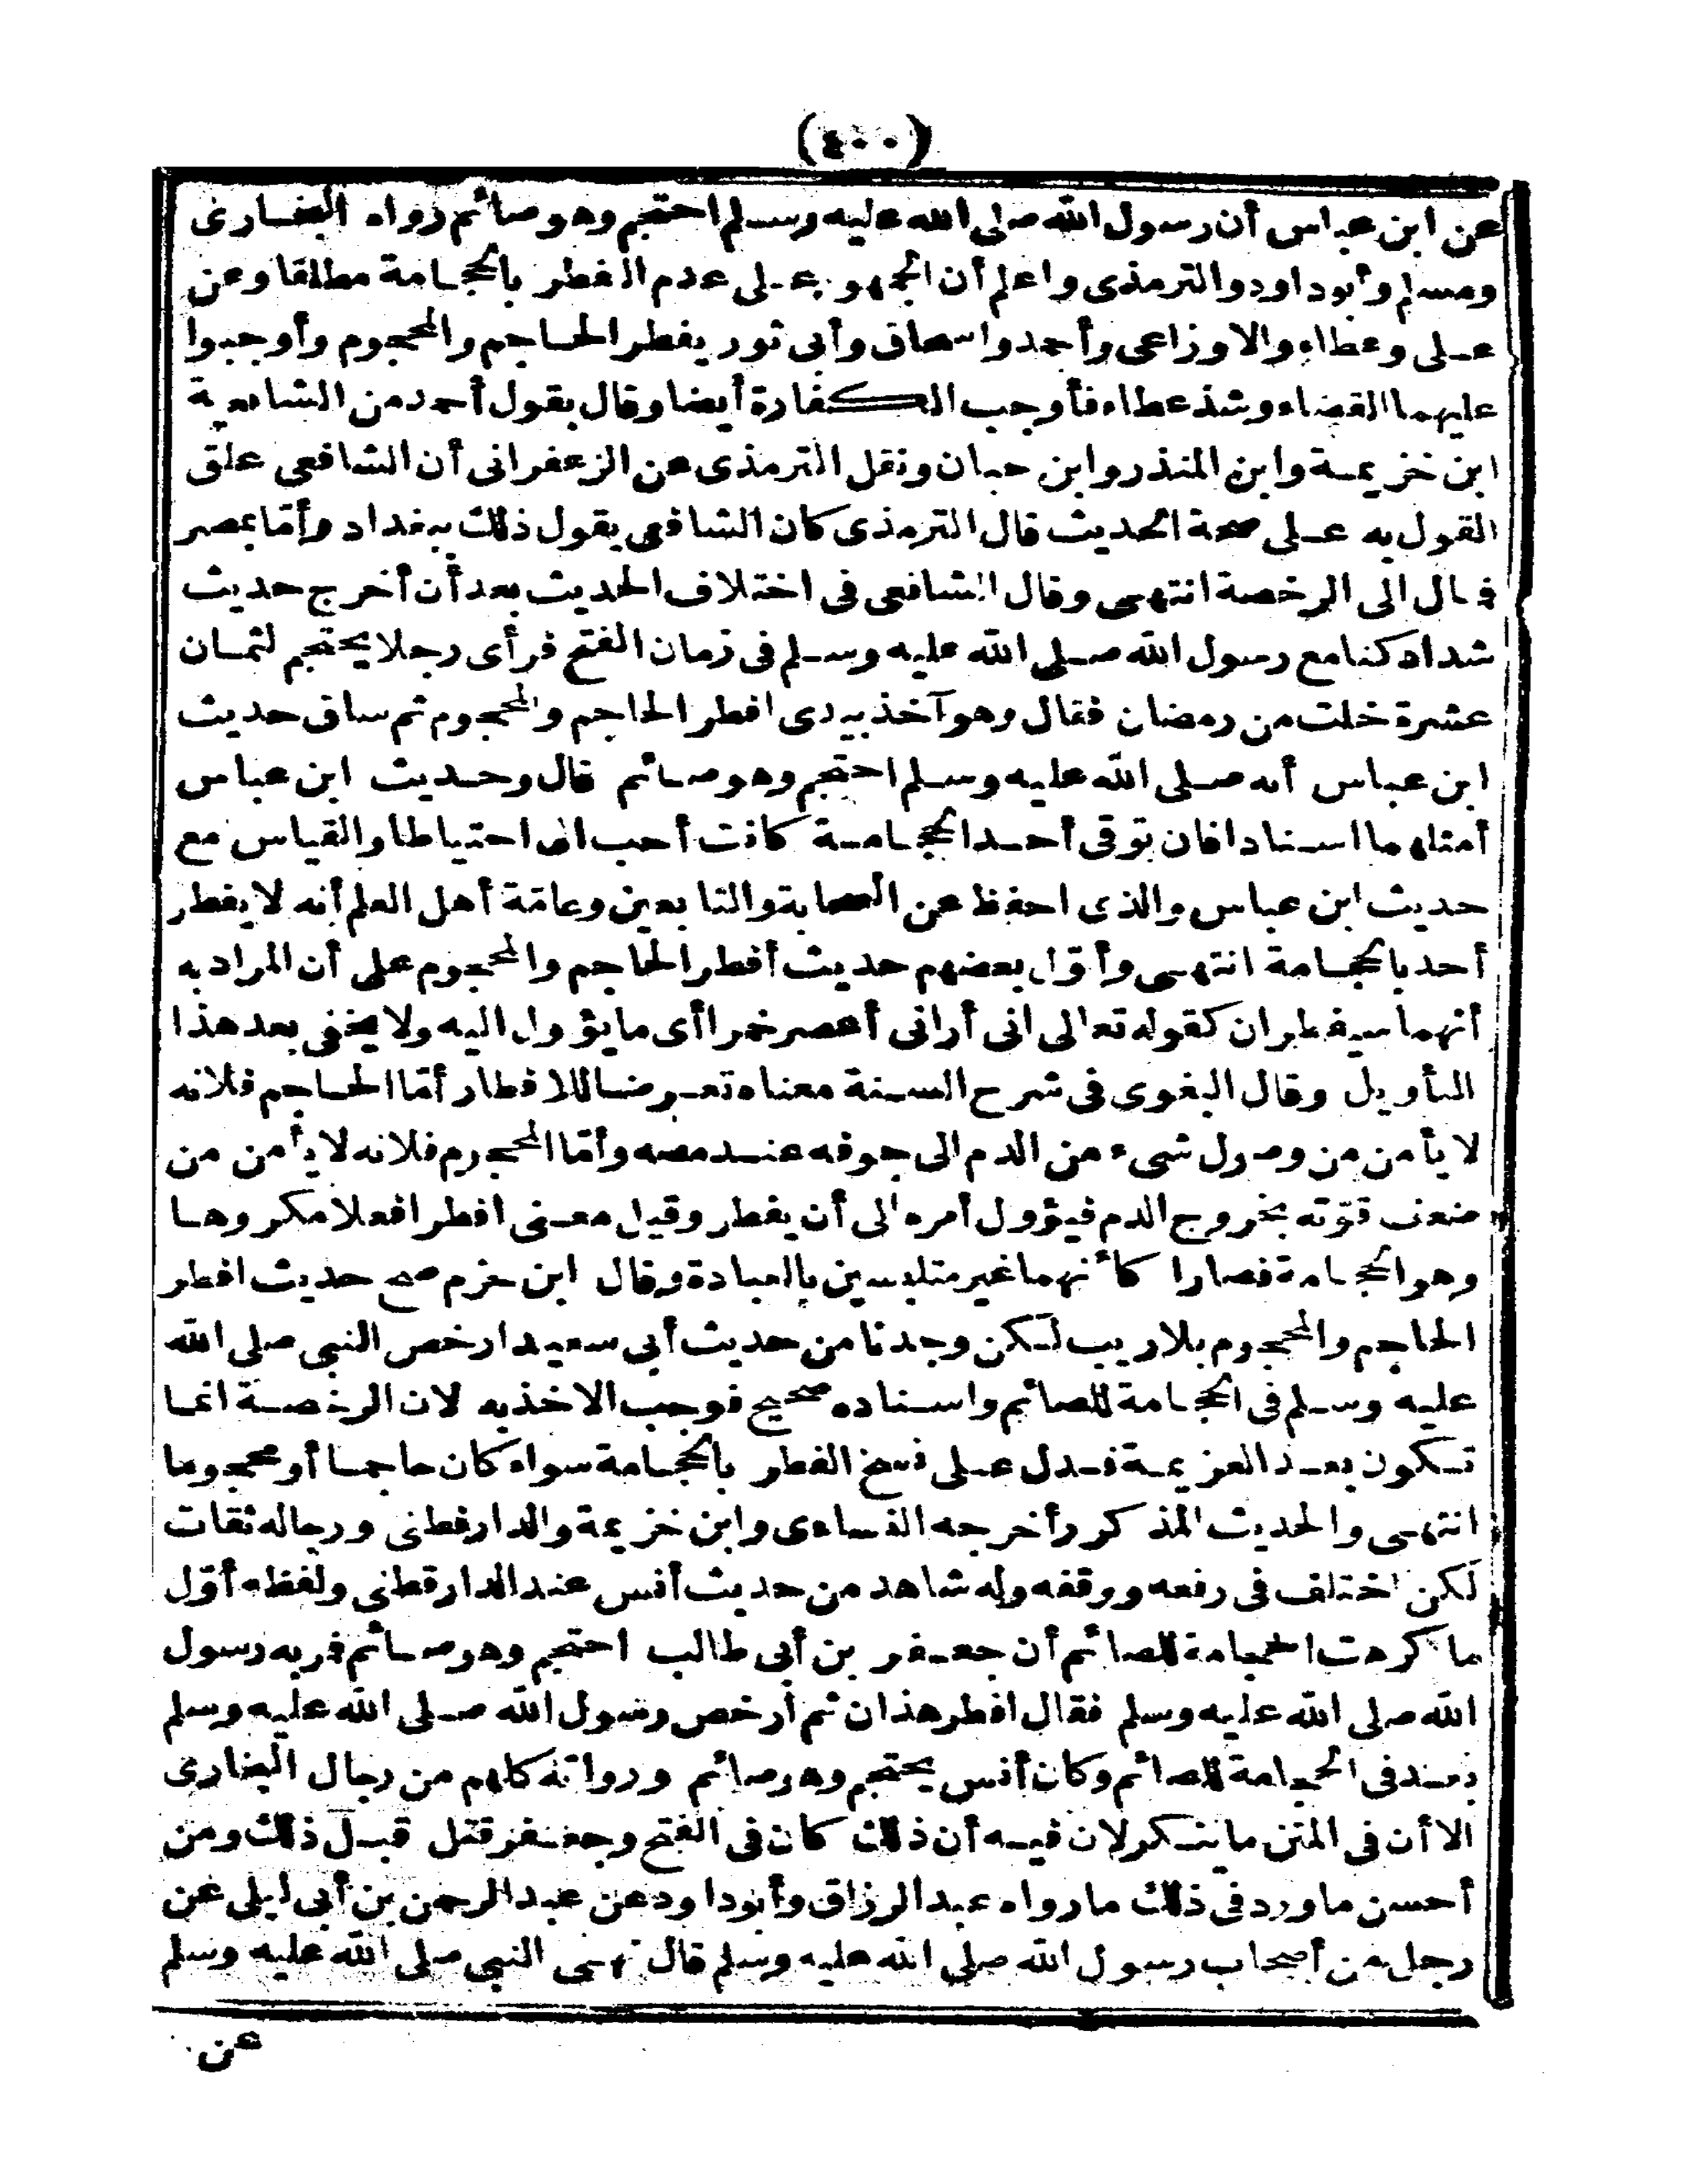 (٤٠٠)
عن ابن عباس أن رسول الله صلى الله عليه وسلم احتجم وهو صائم رواه البخارى
ومسلم وأبو داود والترمذى واعلم أن الجمهور على عدم الفطر بالحجامة مطلقا وعن
على وعطاء والاوزاعى وأحمد واسحاق وأبى ثور يفطر الحاجم والمحجوم وأوجبوا
عليهما القضاء وشذ عطاء فأوجب الكفارة أيضا وقال بقول أحمد من الشافعية
ابن خزيمة وابن المنذر وابن حبان ونقل الترمذى عن الزعفرانى أن الشافعى علق
القول به على صحة الحديث قال الترمذى كان الشافعى يقول ذلك ببغداد وأما بمصر
فمال الى الرخصة انتهى وقال الشافعى فى اختلاف الحديث بعد أن أخرج حديث
شداد كنا مع رسول الله صلى الله عليه وسلم فى زمان الفتح فرأى رجلا يحتجم لثمان
عشرة خلت من رمضان فقال وهو آخذ بيدى افطر الحاجم والمحجوم ثم ساق حديث
ابن عباس أنه صلى الله عليه وسلم احتجم وهو صائم قال وحديث ابن عباس
أمثلهما اسنادا فان توقى أحد الحجامة كانت أحب الى احتياطا والقياس مع
حديث ابن عباس والذى احفظ عن الصحابة والتابعين وعامّة أهل العلم أنه لا يفطر
أحد بالحجامة انتهى وأوّل بعضهم حديث أفطر الحاجم والمحجوم على أن المراد به
أنهما سيفطران كقوله تعالى انى أرانى أعصر خمرا أى ما يؤول اليه ولا يخفى بعد هذا
التأويل وقال البغوى فى شرح السنة معناه تعرضا للافطار أمّا الحاجم فلانه
لا يأمن من وصول شىء من الدم الى جوفه عند مصه وأمّا المحجوم فلانه لا يأمن من
ضعف قوّته بخروج الدم فيؤول أمره الى أن يفطر وقيل معنى افطر افعلا مكروها
وهو الحجامة فصارا كأنهما غير متلبسين بالعبادة وقال ابن حزم صح حديث افطر
الحاجم والمحجوم بلا ريب لكن وجدنا من حديث أبى سعيد ارخص النبى صلى الله
عليه وسلم فى الحجامة للصائم واسناده صحيح فوجب الاخذ به لان الرخصة انما
تكون بعد العزيمة فدل على نسخ الفطر بالحجامة سواء كان حاجما أو محجوما
انتهى والحديث المذكور أخرجه النساءى وابن خزيمة والدارقطنى ورجاله ثقات
لكن اختلف فى رفعه ووقفه وله شاهد من حديث أنس عند الدارقطنى ولفظه أوّل
ما كرهت الحجامة للصائم أن جعفر بن أبى طالب احتجم وهو صائم فمر به رسول
الله صلى الله عليه وسلم فقال افطر هذان ثم أرخص رسول الله صلى الله عليه وسلم
بعد فى الحجامة للصائم وكان أنس يحتجم وهو صائم ورواته كلهم من رجال البخارى
الا أن فى المتن ما ينكر لان فيه أن ذلك كان فى الفتح وجعفر قتل قبل ذلك ومن
أحسن ما ورد فى ذلك ما رواه عبد الرزاق وأبو داود عن عبد الرحمن بن أبى ليلى عن
رجل من أصحاب رسول الله صلى الله عليه وسلم قال نهى النبى صلى الله عليه وسلم
عن